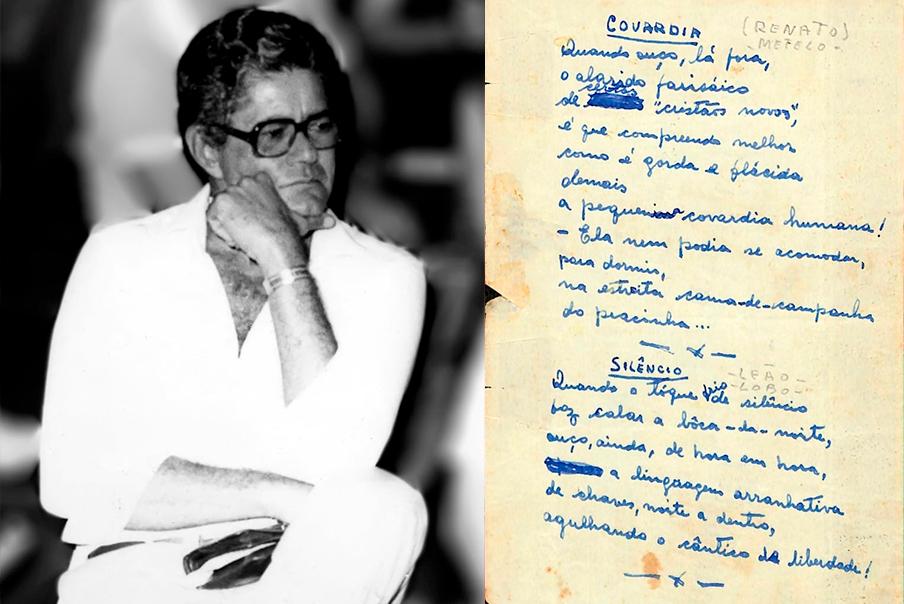 COVARDIA (RENATO)
-METELO-
Quando ouço, lá fora,
o alarido farisáico
de certos "cristãos novos",
é que compreendo melhor
como é gorda e plácida
demais
a pequenina covardia humana!
- Ela nem podia se acomodar,
para dormir,
na estreita cama-de-campanha
do pracinha...
— x —
SILÊNCIO -LEÃO-
-LOBO-
Quando o tóque de silêncio
faz calar a bôca-da-noite,
ouço, ainda, de hora em hora,
a linguagem arranhativa
de chaves, noite a dentro,
agulhando o cântico da liberdade!
— x —